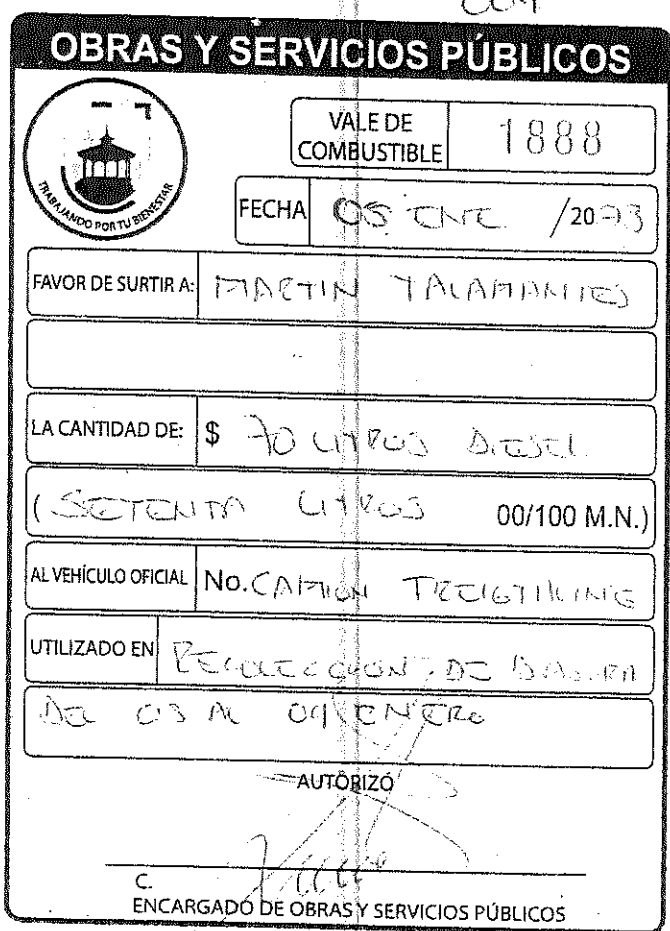 OBRAS Y SERVICIOS PÚBLICOS
TRABAJANDO POR TU BIENESTAR
VALE DE COMBUSTIBLE 1888
FECHA 05 ENE /20
FAVOR DE SURTIR A: MARTIN
LA CANTIDAD DE: $ 70 LITROS DIESEL
(SETENTA LITROS 00/100 M.N.)
AL VEHÍCULO OFICIAL No. CAMION
UTILIZADO EN RECOLECCION DE BASURA
DEL 03 AL ENERO
AUTORIZÓ
C.
ENCARGADO DE OBRAS Y SERVICIOS PÚBLICOS